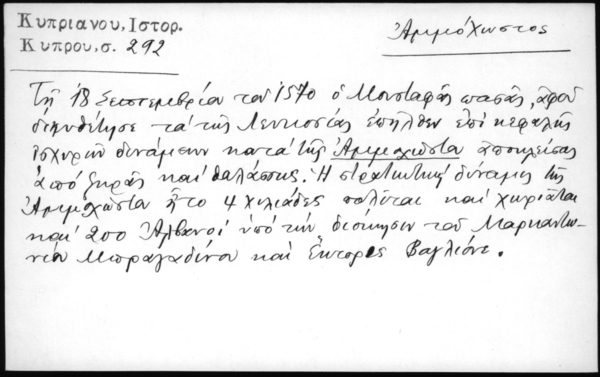 Κυπριανου, Ιστορ.
Κυπρου, σ. 292
Ἀμμόχωστος
Τῇ 18 Σεπτεμβρίου τοῦ 1570 ὁ Μουσταφᾶς πασᾶς, ἀφοῦ
διευθέτησε τά τῆς Λευκοσίας ἐπῆλθεν ἐπί κεφαλῆς
ἰσχυρῶν δυνάμεων κατά τῆς Ἀμμοχώστου ἀποκλείσας
ἀπό ξηρᾶς καί θαλάσσης. Ἡ στρατιωτική δύναμις τῆς
Ἀμμοχώστου ἦτο 4 χιλιάδες πολῖται καί χωριάται
καί 200 Ἀλβανοί ὑπό τήν διοίκησιν τοῦ Μαρκαντω-
νίου Μπραγαδίνου καί Ἕκτορος Βαγλιόνε.